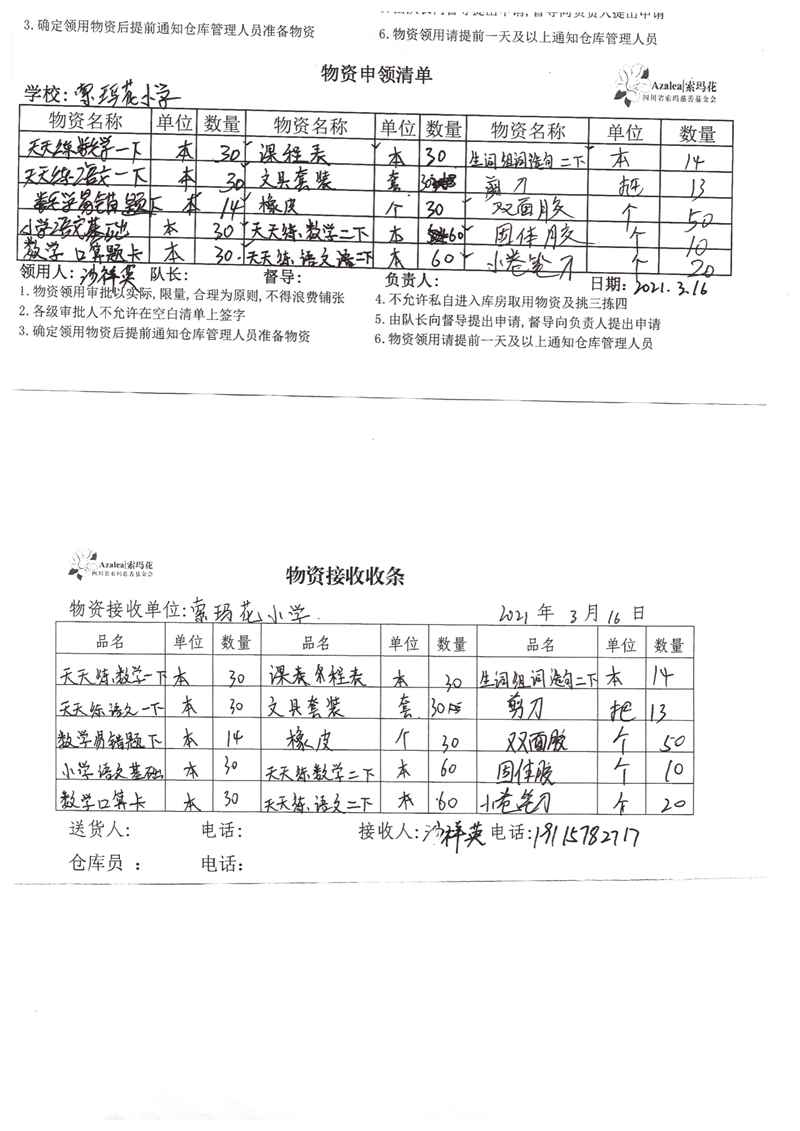 3.确定领用物资后提前通知仓库管理人员准备物资
6.物资领用请提前一天及以上通知仓库管理人员
物资申领清单
Azalea|索玛花
四川省索玛慈善基金会
学校:索玛花小学
物资名称 单位 数量 物资名称 单位 数量 物资名称 单位 数量
天天练数学一下 本 30 课程表 本 30 生词组词造句二下 本 14
天天练语文一下 本 30 文具套装 套 30 剪刀 把 13
数学易错题下 本 14 橡皮 个 30 双面胶 个 50
小学语文基础 本 30 天天练数学二下 本 60 固体胶 个 10
数学口算题卡 本 30 天天练语文二下 本 60 小卷笔刀 个 20
领用人:沙祥英 队长: 督导: 负责人: 日期:2021.3.16
1.物资领用审批以实际,限量,合理为原则,不得浪费铺张
4.不允许私自进入库房取用物资及挑三拣四
2.各级审批人不允许在空白清单上签字
5.由队长向督导提出申请,督导向负责人提出申请
3.确定领用物资后提前通知仓库管理人员准备物资
6.物资领用请提前一天及以上通知仓库管理人员
Azalea|索玛花
四川省索玛慈善基金会
物资接收收条
物资接收单位:索玛花小学 2021年3月16日
品名 单位 数量 品名 单位 数量 品名 单位 数量
天天练数学一下 本 30 课程表 本 30 生词组词造句二下 本 14
天天练语文一下 本 30 文具套装 套 30 剪刀 把 13
数学易错题下 本 14 橡皮 个 30 双面胶 个 50
小学语文基础 本 30 天天练数学二下 本 60 固体胶 个 10
数学口算卡 本 30 天天练语文二下 本 60 小卷笔刀 个 20
送货人: 电话: 接收人:沙祥英 电话:19115782717
仓库员 : 电话: